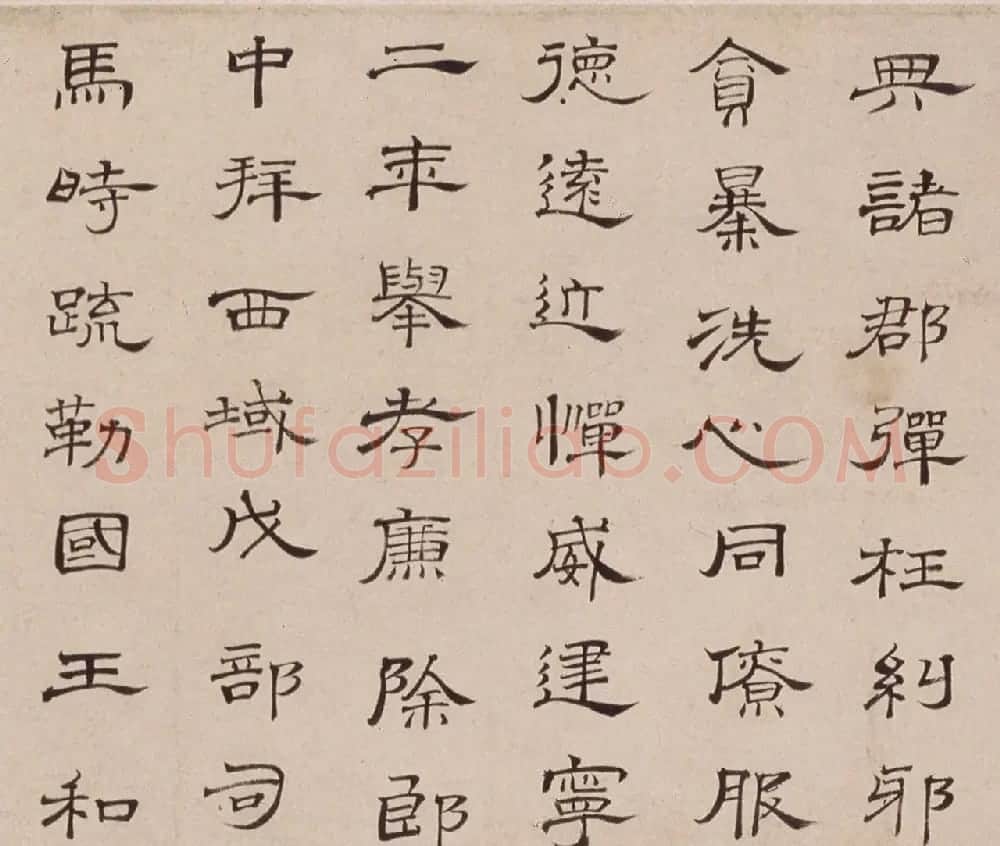 典諸郡彈枉糾邪
貪暴洗心同僚服
德遠近憚威建寧
二年舉孝廉除郎
中拜西域戊部司
馬時疏勒國王和
Shufaziliao.COM